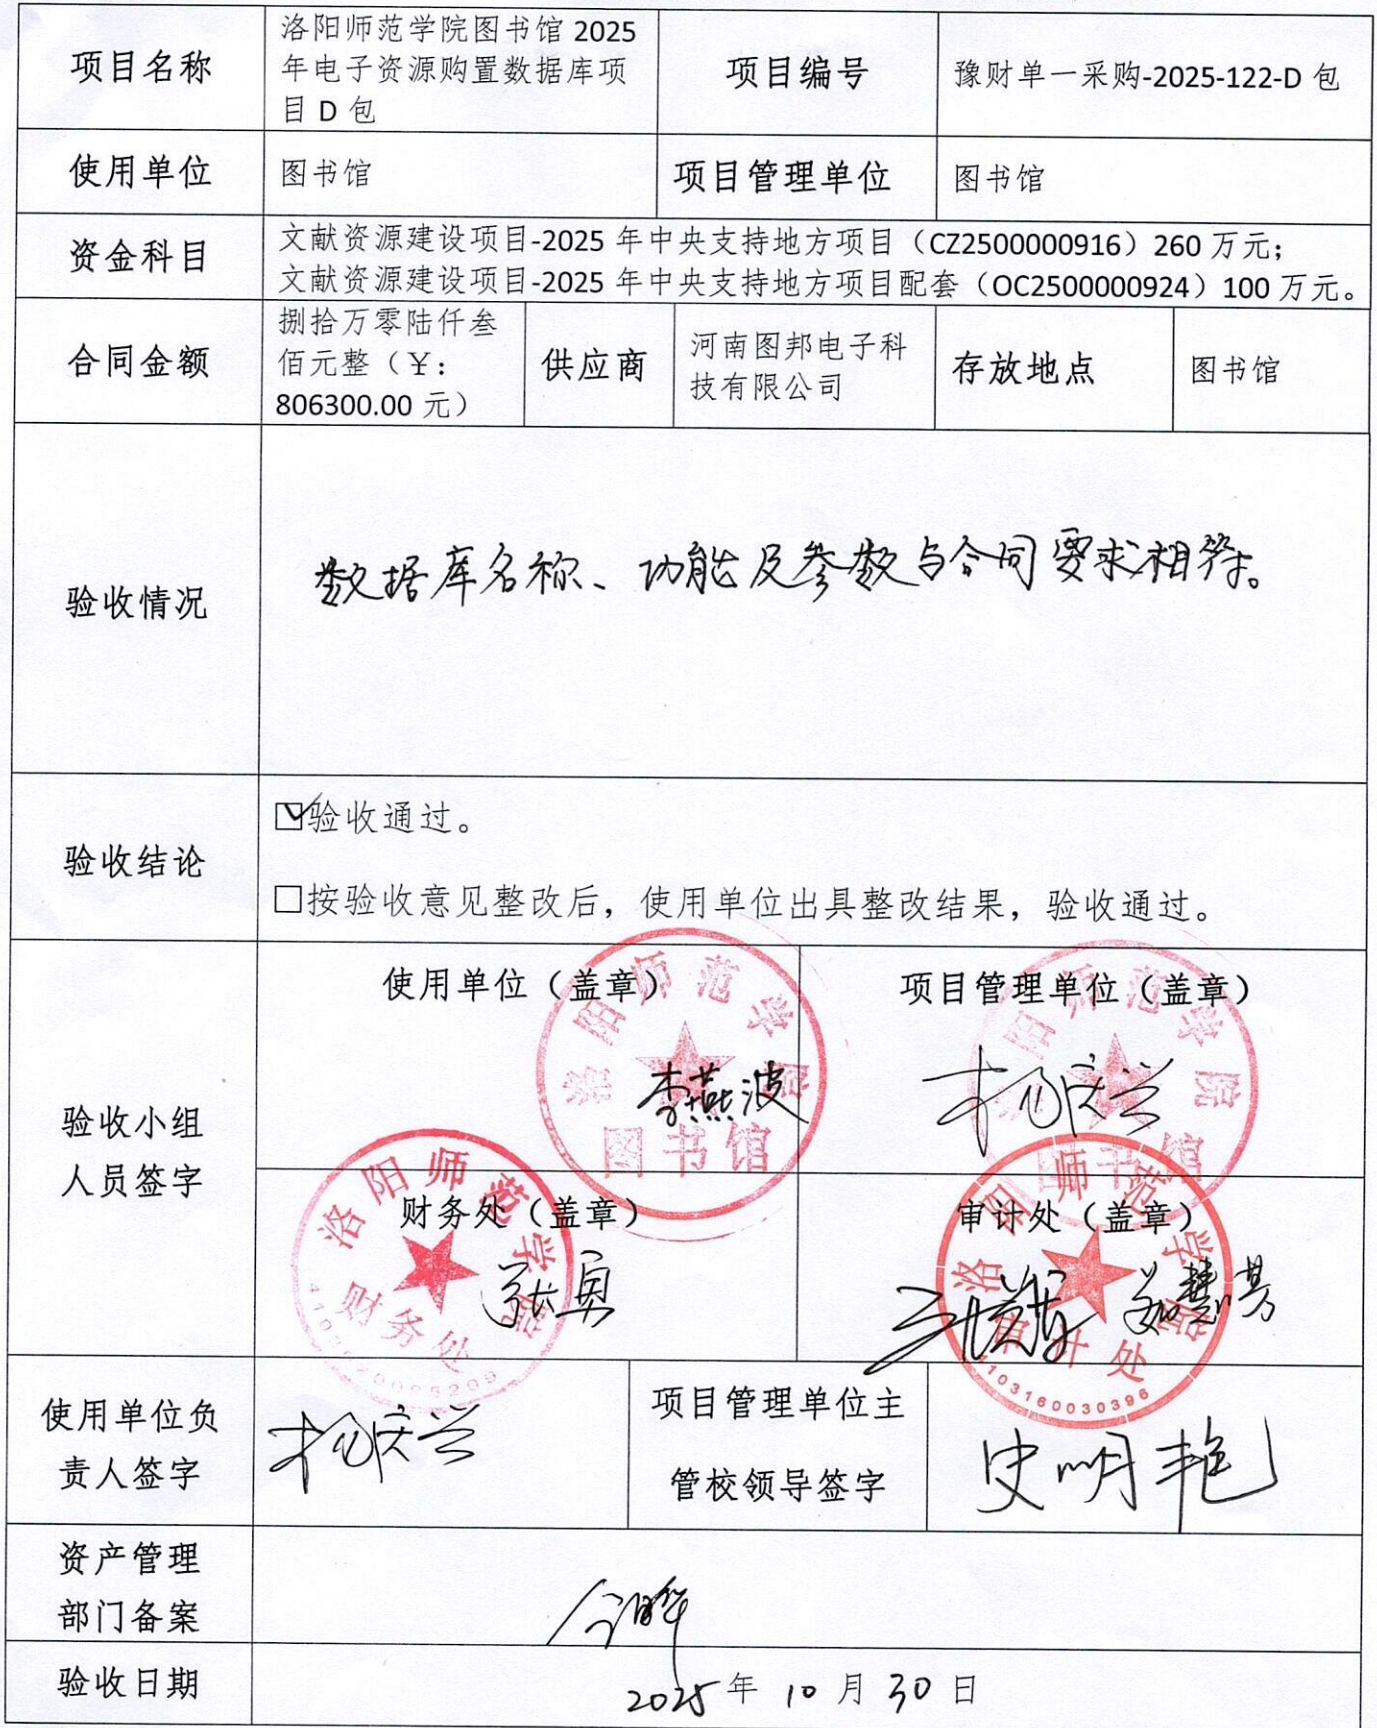 项目名称
洛阳师范学院图书馆 2025
年电子资源购置数据库项
目 D 包
项目编号
豫财单一采购-2025-122-D 包
使用单位
图书馆
项目管理单位
图书馆
资金科目
文献资源建设项目-2025 年中央支持地方项目（CZ2500000916）260 万元；
文献资源建设项目-2025 年中央支持地方项目配套（OC2500000924）100 万元。
合同金额
捌拾万零陆仟叁
佰元整（￥：
806300.00 元）
供应商
河南图邦电子科
技有限公司
存放地点
图书馆
验收情况
数据库名称、功能及参数与合同要求相符。
验收结论
☑验收通过。
□按验收意见整改后，使用单位出具整改结果，验收通过。
验收小组
人员签字
使用单位（盖章）
洛阳师范学院
李燕波
图书馆
项目管理单位（盖章）
洛阳师范学院
杨庆兰
图书馆
财务处（盖章）
洛阳师范学院
张勇
财务处
审计处（盖章）
洛阳师范学院
审计处
4103160030396
使用单位负
责人签字
项目管理单位主
管校领导签字
史明艳
资产管理
部门备案
验收日期
2025 年 10 月 30 日